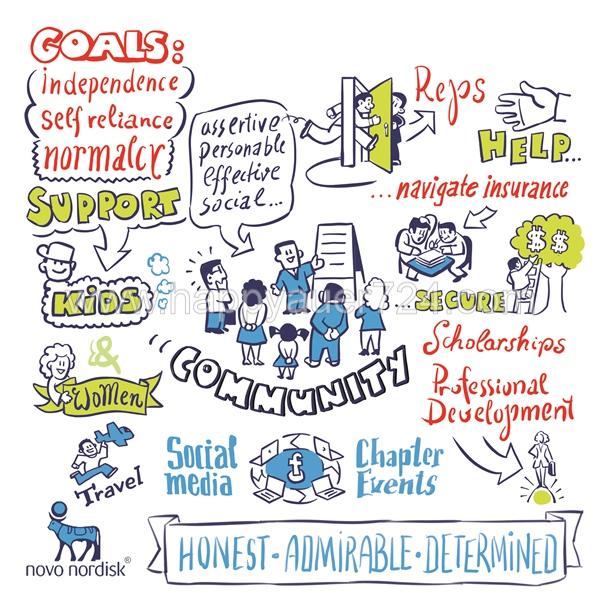 GOALS:
independence
self reliance
normalcy
SUPPORT
KiDS
&
WOMEN
Travel
assertive
personable
effective
social...
Reps
HELP...
...navigate insurance
$ $
...SECURE
Scholarships
Professional
Development
COMMUNITY
Social
media
f
Chapter
Events
novo nordisk®
HONEST · ADMIRABLE · DETERMINED